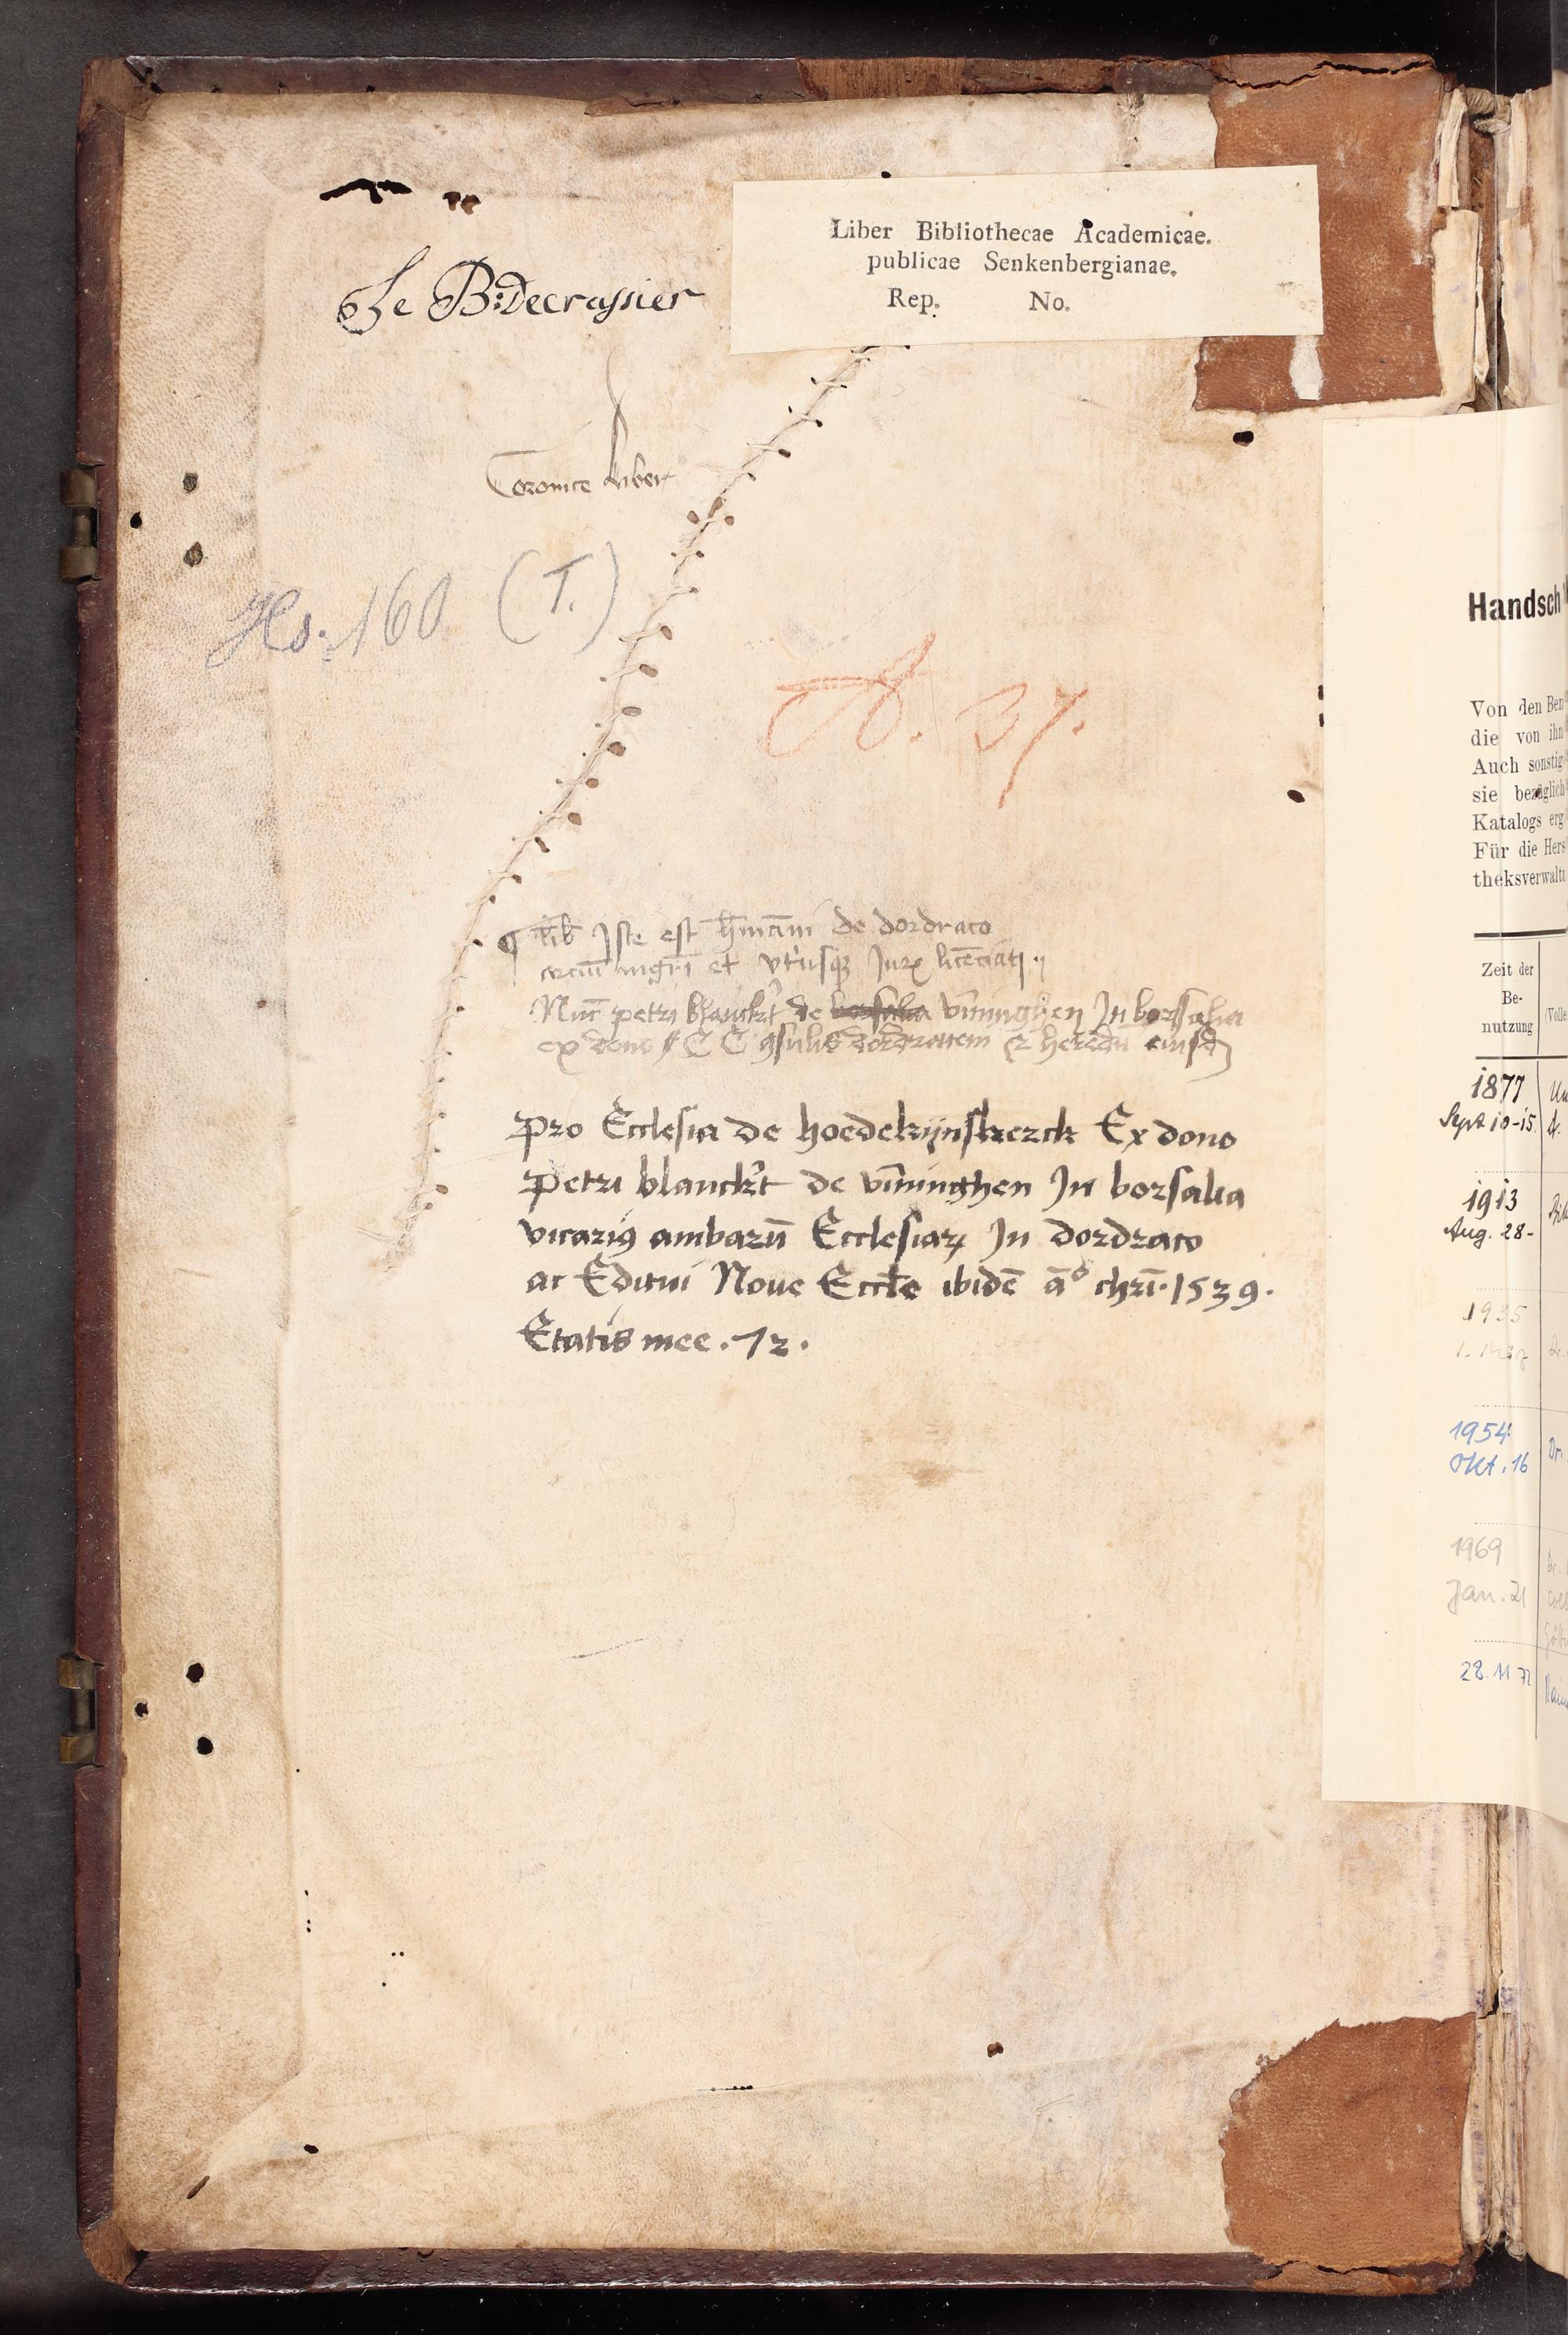 Liber Bibliothecae Academicae.
publicae Senkenbergianae.
Rep. No.
Le B: Decrassier
Coronice liber
Hs. 160 (T.)
A. 37.
¶ lib̄ Iste est h̄man̄i de dordraco
arciū mgr̄i et vtriusqꝫ Iurꝭ licēciati
Nūc petri blanckr̄t de borsalia vin̄inghen In borssalia
ex dono
pro Ecclesia de hoedekijnskerck Ex dono
petri blanckr̄t de vin̄inghen In borsalia
vicariꝰ ambarū Ecclesiaꝝ In dordraco
ac Editui Noue Eccl̄e ibidē āº chrī. 1539.
Etatis mee . 72 .
Handsch
Von den Ben
die von ihn
Auch sonstig
sie bezüglich
Katalogs erg
Für die Hers
theksverwaltu
Zeit der
Be-
nutzung
(Volle
1877
Sept 10-15.
1913
Aug. 28-
1935
1954
Okt. 16
Dr.
1969
Jan. 21
28.11.72